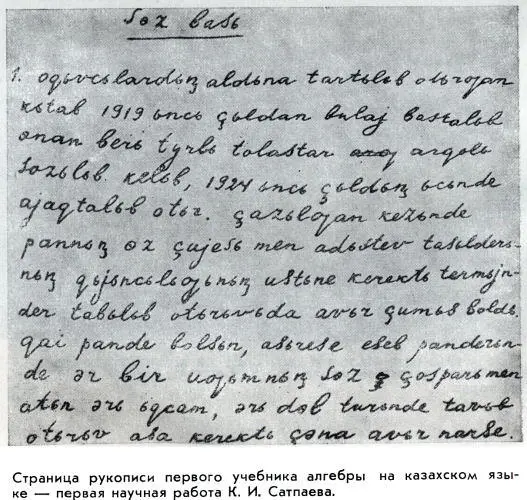 Søz basь
1. oqьvcьlardьꞑ aldьna tartьlьb otьrƣan
kьtab 1919 ьncь çьldan bulaj bastalьb
onan berь tyrlь tolastar arqьlь
sozьlьb kelьb, 1924 ьncь çьldьꞑ ьcьnde
ajaqtalьb otьr. Çazьlƣan kezьnde
pannьꞑ øz çyjesь men adьstev tasьlderь-
nьꞑ qьjьncьlьƣьnьꞑ ustьne kerektь termjn-
der tabьlьb otьruvda avьr çumьs boldь.
qai pande bolsьn, asьrese eseb panderьn-
de ər bir uƣьmnьꞑ søz çosparь men
atьn ərь ьqcam, ərь dəl turьnde tavьb
otьrьv asa kerektь çəna avьr narse.
Страница рукописи первого учебника алгебры на казахском язы-
ке — первая научная работа К. И. Сатпаева.